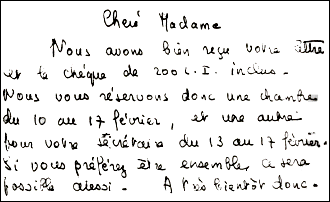 Cheré Madame
Nous avons bien reçu votre lettre
et le chèque de 200 £.I. inclus.
Nous vous réservons donc une chambre
du 10 au 17 février, et une autre
pour votre sécrétaire du 13 au 17 février.
Si vous préférez être ensemble, ce sera
possible aussi. A très bientôt donc.